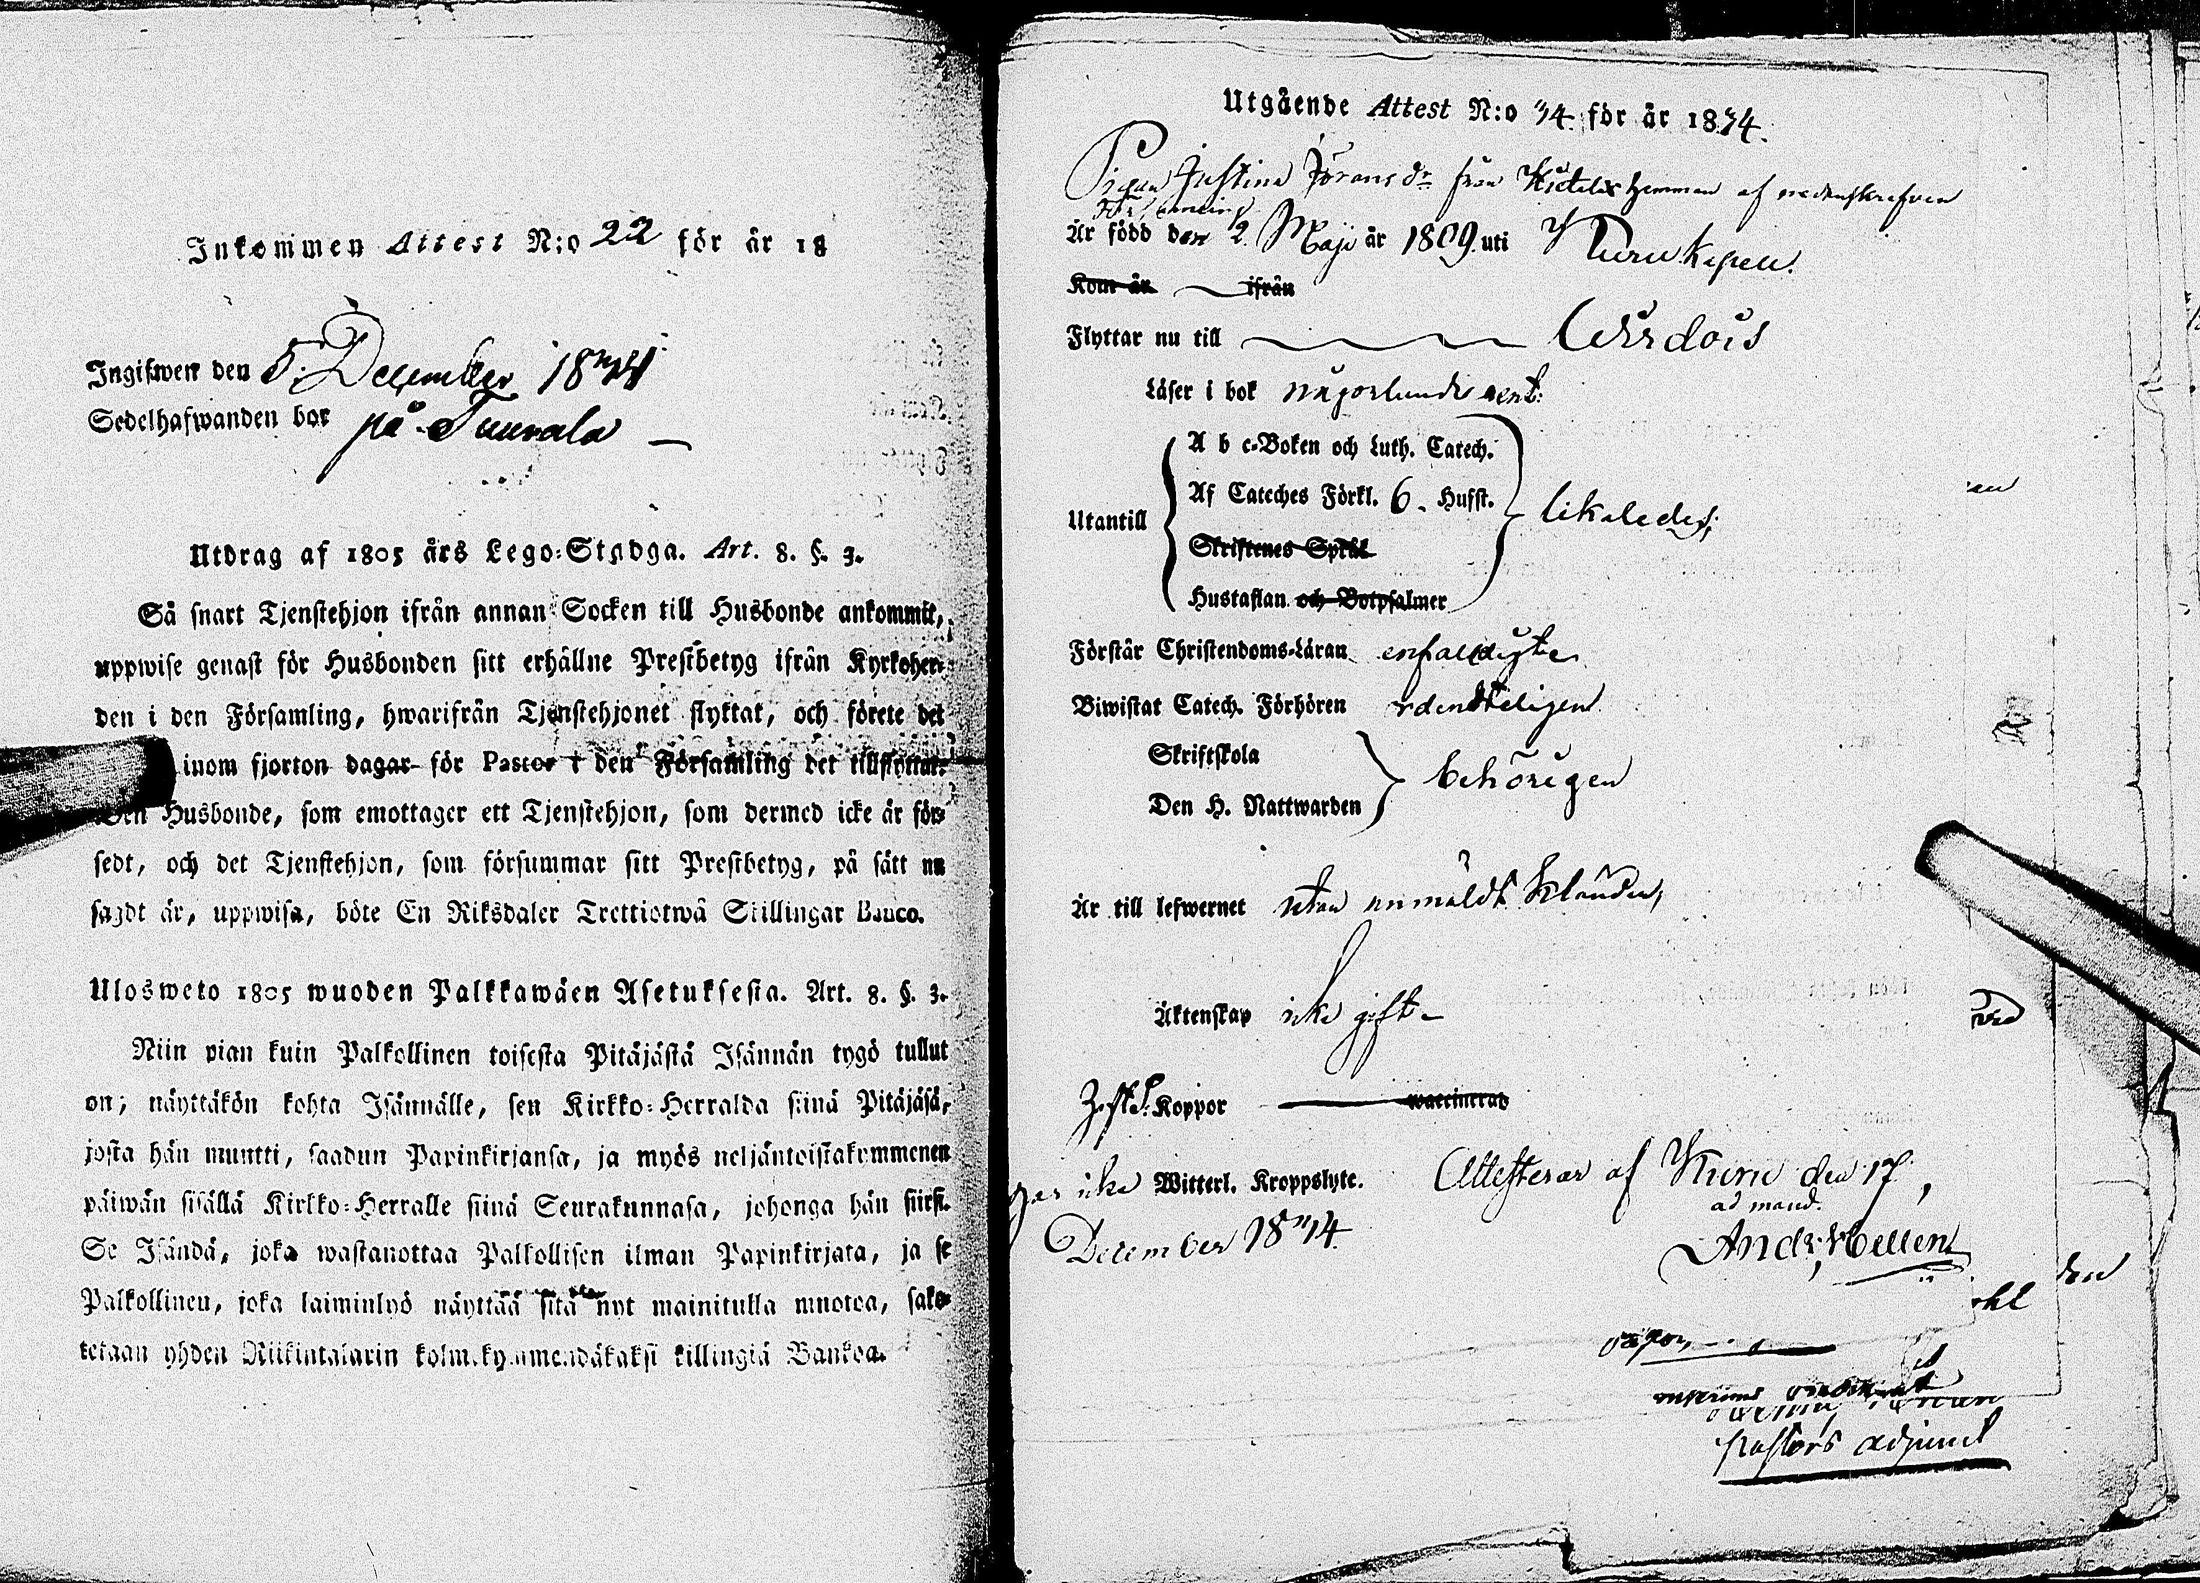 Inkommen Attest N:o 22 för år 18
Ingifwen den 5. December 18
Sedelhafwanden bor på Tuurala
Utdrag af 1805 års Lego-Stadga. Art. 8. §. 3.
Så snart Tjenstehjon ifrån annan Socken till Husbonde ankommit,
uppwise genast för Husbonden sitt erhållne Prestbetyg ifrån Kyrkoher-
den i den Församling, hwarifrån Tjenstehjonet flyttat, och förete det
inom fjorton dagar för Pastor i den Församling det tillflyttat.
Den Husbonde, som emottager ett Tjenstehjon, som dermed icke är för-
sedt, och det Tjenstehjon, som försummar sitt Prestbetyg, på sätt nu
sagdt är, uppwisa, böte En Riksdaler Trettiotwå Skillingar Banco.
Ulosweto 1805 wuoden Palkkawäen Asetuksesta. Art. 8. §. 3.
Niin pian kuin Palkollinen toisesta Pitäjästä Isännän tygö tullut
on; näyttäkön kohta Isännälle, sen Kirkko-Herralda siinä Pitäjäsä,
josta hän muutti, saadun Papinkirjansa, ja myös neljäntoistakymmenen
päiwän sisällä Kirkko-Herralle siinä Seurakunnasa, johonga hän siirsi.
Se Isändä, joka wastanottaa Palkollisen ilman Papinkirjata, ja se
Palkollinen, joka laiminlyö näyttää sitä nyt mainitulla muotoa, sako-
tetaan yhden Riikintalarin kolmekymmendäkaksi killingiä Bankoa.
Utgående Attest N:o 34. för år 1834.
Pigan Justina Jörans dr från hemman af nedanskrefven
Församling
Är född den 2. Maji år 1809. uti Kuru Kapell.
Kom år ifrån
Flyttar nu till
Läser i bok någorlunda rent.
Utantill
A b c-Boken och Luth. Catech.
Af Cateches Förkl. 6. Hufst.
Skriftenes Språk
Hustaflan och Botpsalmer
likaledes;
Förstår Christendoms-Läran enfaldigt
Biwistat Catech. Förhören ordenteligen
Skriftskola
Den H. Nattwarden
behörigen
Är till lefwernet utan anmäldt klander;
Äktenskap icke gift
Koppor waccinerad
har icke Witterl. Kroppslyte. Attesterar af Kuru den 17
December 1834.
ad mand.
And. Hellen
pastors adjunct